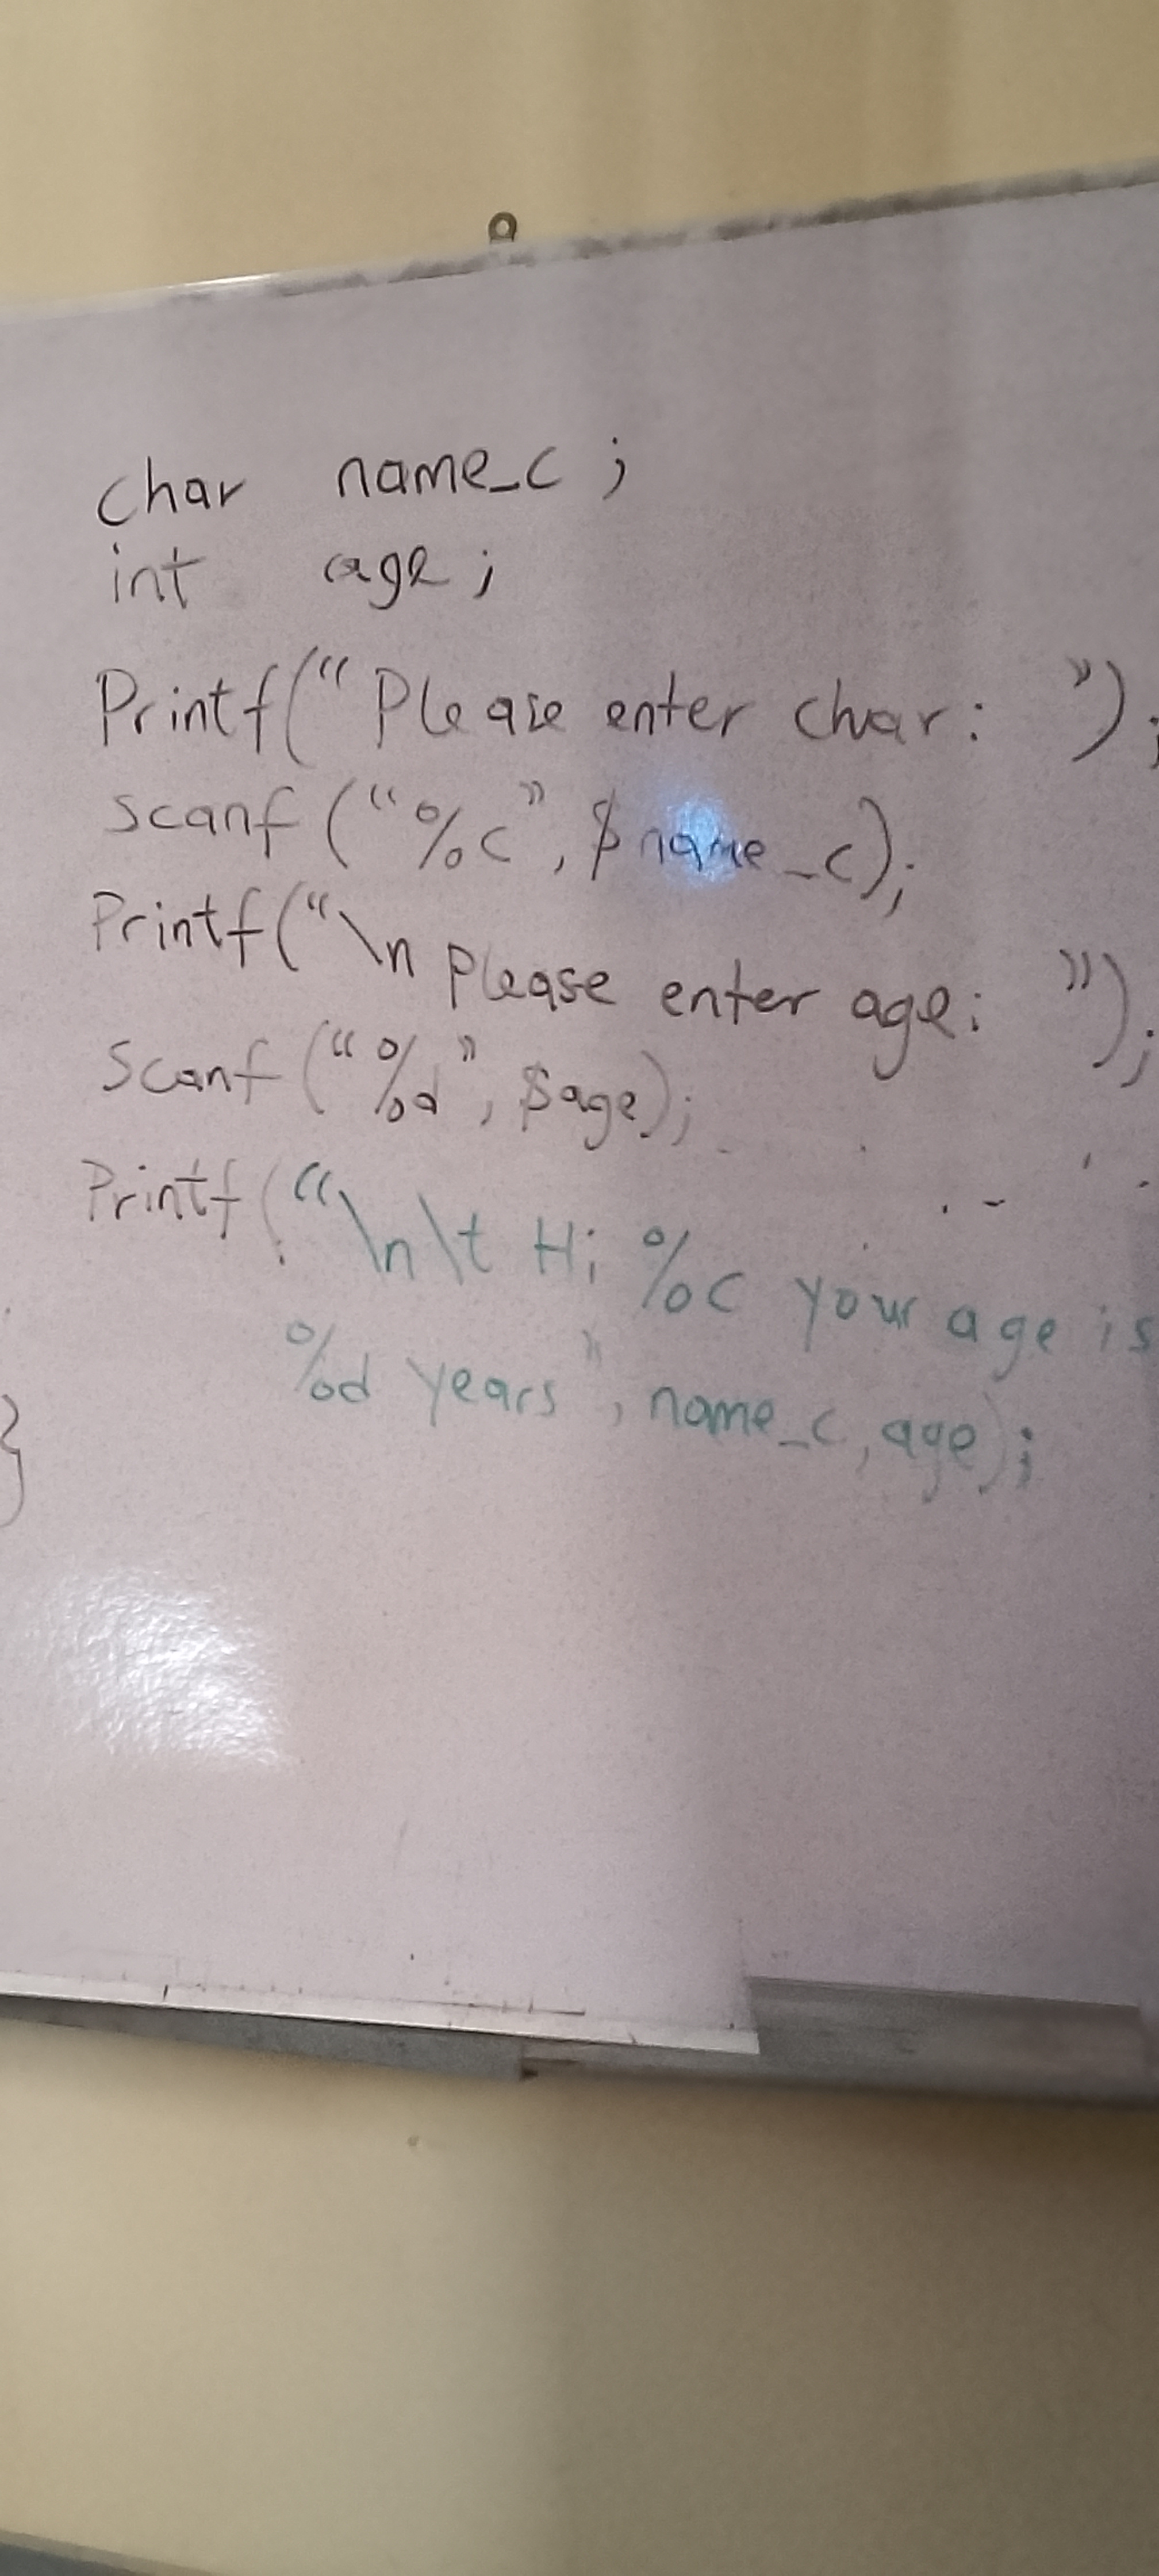 char name_c ;
int age ;
Printf("Please enter char: ");
scanf ("%c", $name_c);
Printf("\n Please enter age: ");
Scanf ("%d", $age);
Printf("\n\t Hi %c your age is
%d years", name_c, age);
}